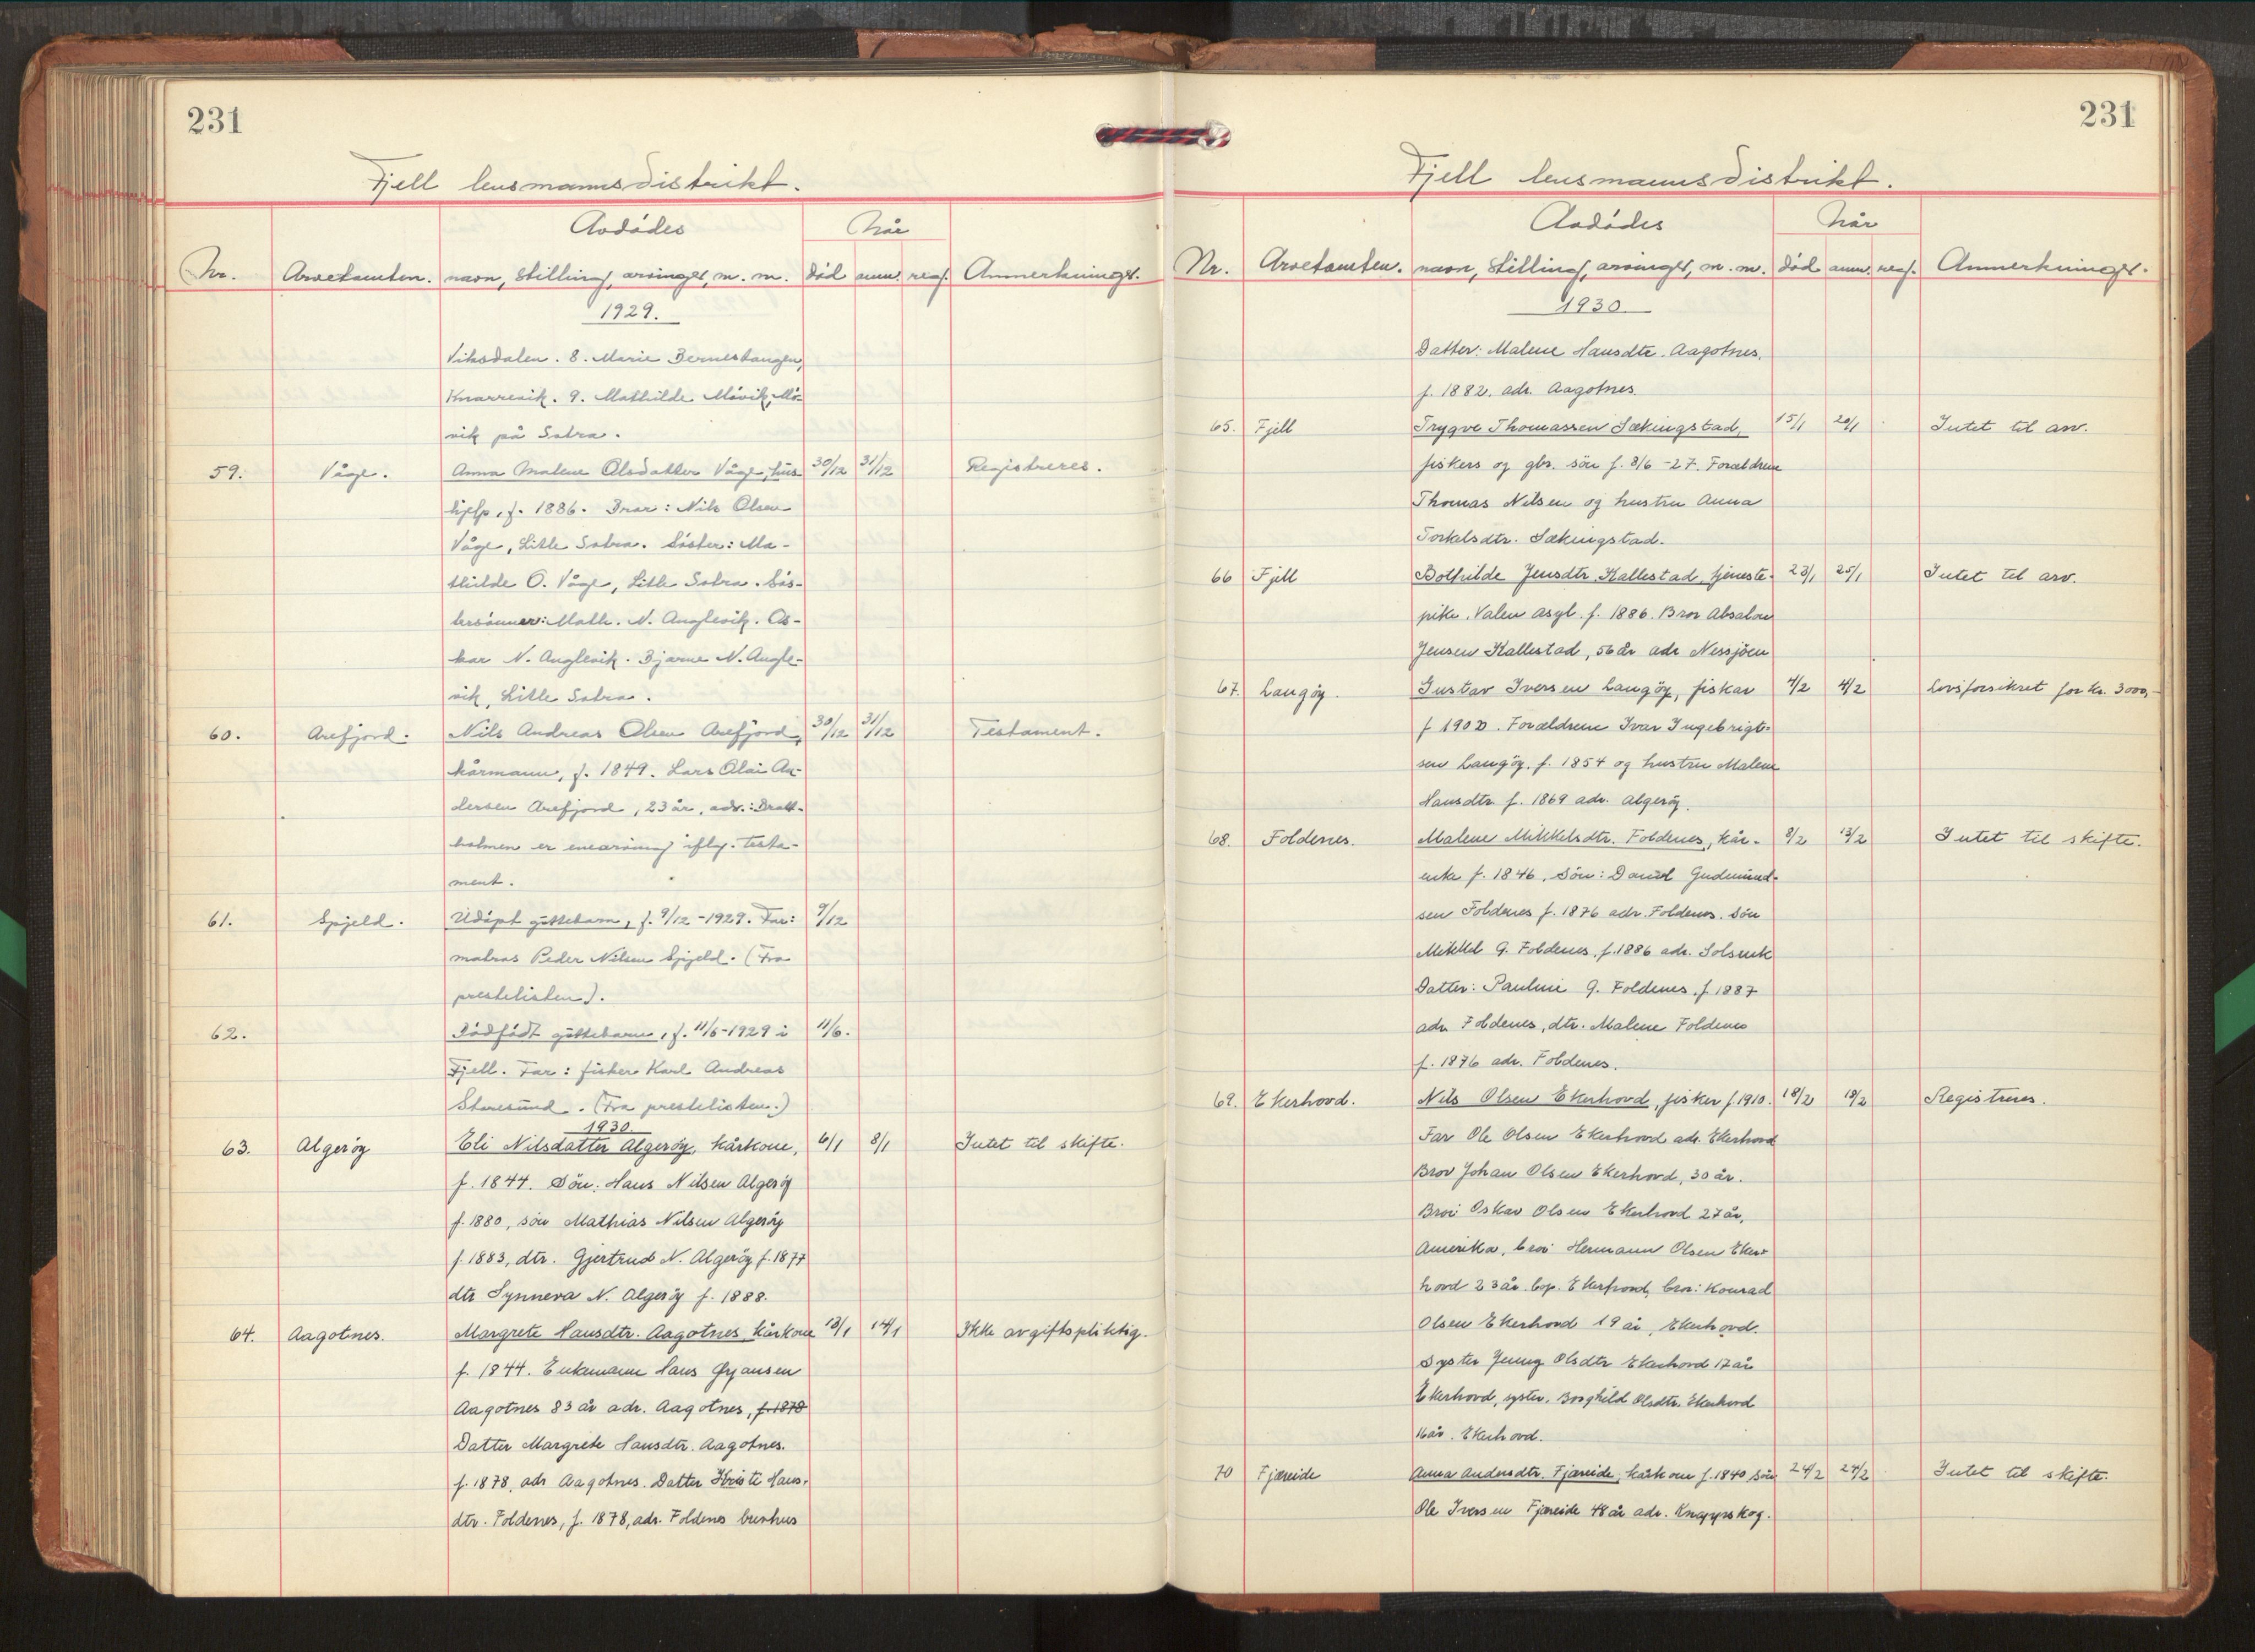 231
Fjell lensmannsdistrikt.
Avdødes
Når
Nr. Arvetomten. navn, stilling, arvinger, m. m. død anm. reg. Anmerkninger.
1929.
Viksdalen. 8. Marie Bernestangen,
Knarrevik. 9. Mathilde Møvik, Mø-
vik på Sotra.
59. Våge. Anna Malene Olsdatter Våge, hus- 30/12 31/12 Registreres.
hjelp, f. 1886. Bror: Nils Olsen
Våge, Litle Sotra. Søster: Ma-
thilde O. Våge, Litle Sotra. Søs-
tersønner: Math. N. Anglevik. Os-
kar N. Anglevik. Bjarne N. Angle-
vik, Litle Sotra.
60. Arefjord. Nils Andreas Olsen Arefjord, 30/12 31/12 Testament.
kårmann, f. 1849. Lars Olai An-
dersen Arefjord, 23 år, adr.: Bratt-
holmen er enearving iflg. testa-
ment.
61. Spjeld. Udøpt guttebarn, f. 9/12-1929. Far: 9/12
matros Peder Nilsen Spjeld. (Fra
prestelisten).
62. Dødfødt guttebarn, f. 11/6-1929 i 11/6.
Fjell. Far: fisker Karl Andreas
Staresund. (Fra prestelisten.)
1930.
63. Algerøy Eli Nilsdatter Algerøy, kårkone, 6/1 8/1 Intet til skifte.
f. 1844. Søn: Hans Nilsen Algerøy
f. 1880, søn Mathias Nilsen Algerøy
f. 1883, dtr. Gjertrud N. Algerøy f. 1877
dtr Synneva N. Algerøy f. 1888.
64. Aagotnes. Margrete Hansdtr. Aagotnes, kårkone 13/1 14/1 Ikke avgiftspliktig.
f. 1844. Enkemann Hans Ørjansen
Aagotnes 83 år adr. Aagotnes, f. 1878
Datter Margrete Hansdtr. Aagotnes.
f. 1878, adr Aagotnes. Datter Kristi Hans-
dtr. Foldenes, f. 1878, adr. Foldenes
231
Fjell lensmannsdistrikt.
Avdødes
Når
Nr. Arvetomten. navn, stilling, arvinger, m. m. død anm. reg. Anmerkninger.
1930
Datter: Malene Hansdtr. Aagotnes.
f. 1882. adr. Aagotnes.
65. Fjell Trygve Thomassen Sækingstad, 15/1 20/1 Intet til arv.
fiskers og gbr. søn f. 8/6-27. Foreldrene
Thomas Nilsen og hustru Anna
Torkelsdtr. Sækingstad.
66 Fjell Bothilde Jensdtr Kallestad, tjeneste- 23/1 25/1 Intet til arv.
pike, Valen asyl. f. 1886. Bror Absalon
Jensen Kallestad, 56 år adr Nessjøen
67. Langøy. Gustav Iversen Langøy, fisker 4/2 4/2 Livsforsikret for kr. 3000,-
f 1902. Foreldrene Ivar Ingebrigt-
sen Langøy. f. 1854 og hustru Malene
Hansdtr. f. 1869 adr. Algerøy.
68. Foldenes. Malene Mikkelsdtr. Foldenes, kår- 8/2 13/2 Intet til skifte.
enke f. 1846. Søn: Daniel Gudmund-
sen Foldenes f. 1876 adr. Foldenes. Søn
Mikkel G. Foldenes, f. 1886 adr. Solsvik
Datter: Pauline G. Foldenes. f 1887
adr Foldenes, dtr. Malene Foldenes
f. 1876 adr. Foldenes.
69. Ekerhovd. Nils Olsen Ekerhovd, fisker f. 1910. 18/2 19/2 Registreres.
Far Ole Olsen Ekerhovd adr. Ekerhovd
Bror Johan Olsen Ekerhovd, 30 år.
Bror Oskar Olsen Ekerhovd 27 år,
Amerika, bror Hermann Olsen Eker-
hovd 23 år. bop. Ekerhovd, bror: Konrad
Olsen Ekerhovd 19 år, Ekerhovd.
Syster Jenny Olsdtr Ekerhovd 17 år
Ekerhovd, syster. Borghild Olsdtr. Ekerhovd
16 år. Ekerhovd.
70 Fjæreide Anna Andersdtr. Fjæreide, kårkone f. 1840 søn 24/2 27/2 Intet til skifte.
Ole Iversen Fjæreide 48 år adr. Knappskog.